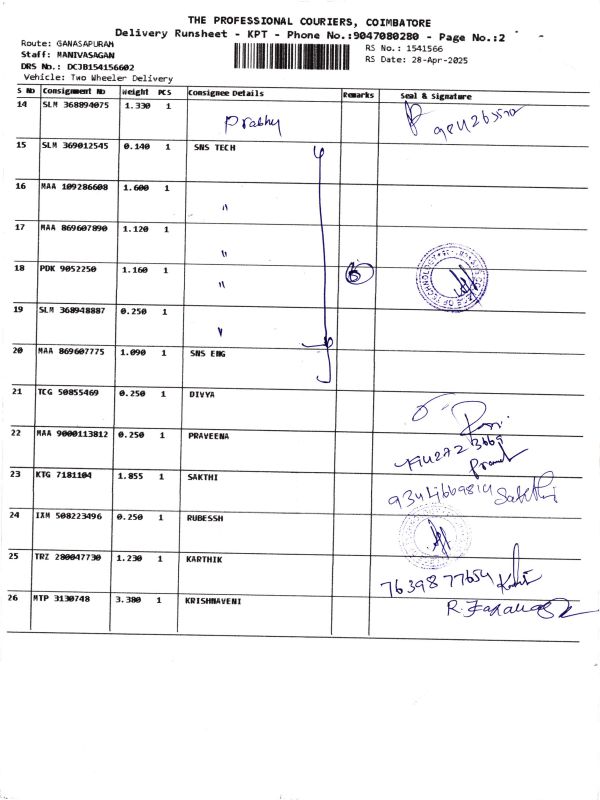 THE PROFESSIONAL COURIERS, COIMBATORE
Delivery Runsheet - KPT - Phone No.:9047080280 - Page No.:2
Route: GANASAPURAM
Staff: MANIVASAGAN
DRS No.: DCJB154156602
Vehicle: Two Wheeler Delivery
RS No.: 1541566
RS Date: 28-Apr-2025
S No Consignment No Weight PCS Consignee Details Remarks Seal & Signature
14 SLM 368894075 1.330 1 Prabhu
15 SLM 369012545 0.140 1 SNS TECH
16 MAA 109286608 1.600 1 "
17 MAA 869607890 1.120 1 "
18 PDK 9052250 1.160 1 "
19 SLM 368948887 0.250 1 "
20 MAA 869607775 1.090 1 SNS ENG
21 TCG 50855469 0.250 1 DIVYA
22 MAA 9000113812 0.250 1 PRAVEENA
23 KTG 7181104 1.855 1 SAKTHI 9344669814 Sakthi
24 IXM 508223496 0.250 1 RUBESSH
25 TRZ 280047730 1.230 1 KARTHIK 7639877654
26 MTP 3130748 3.380 1 KRISHNAVENI